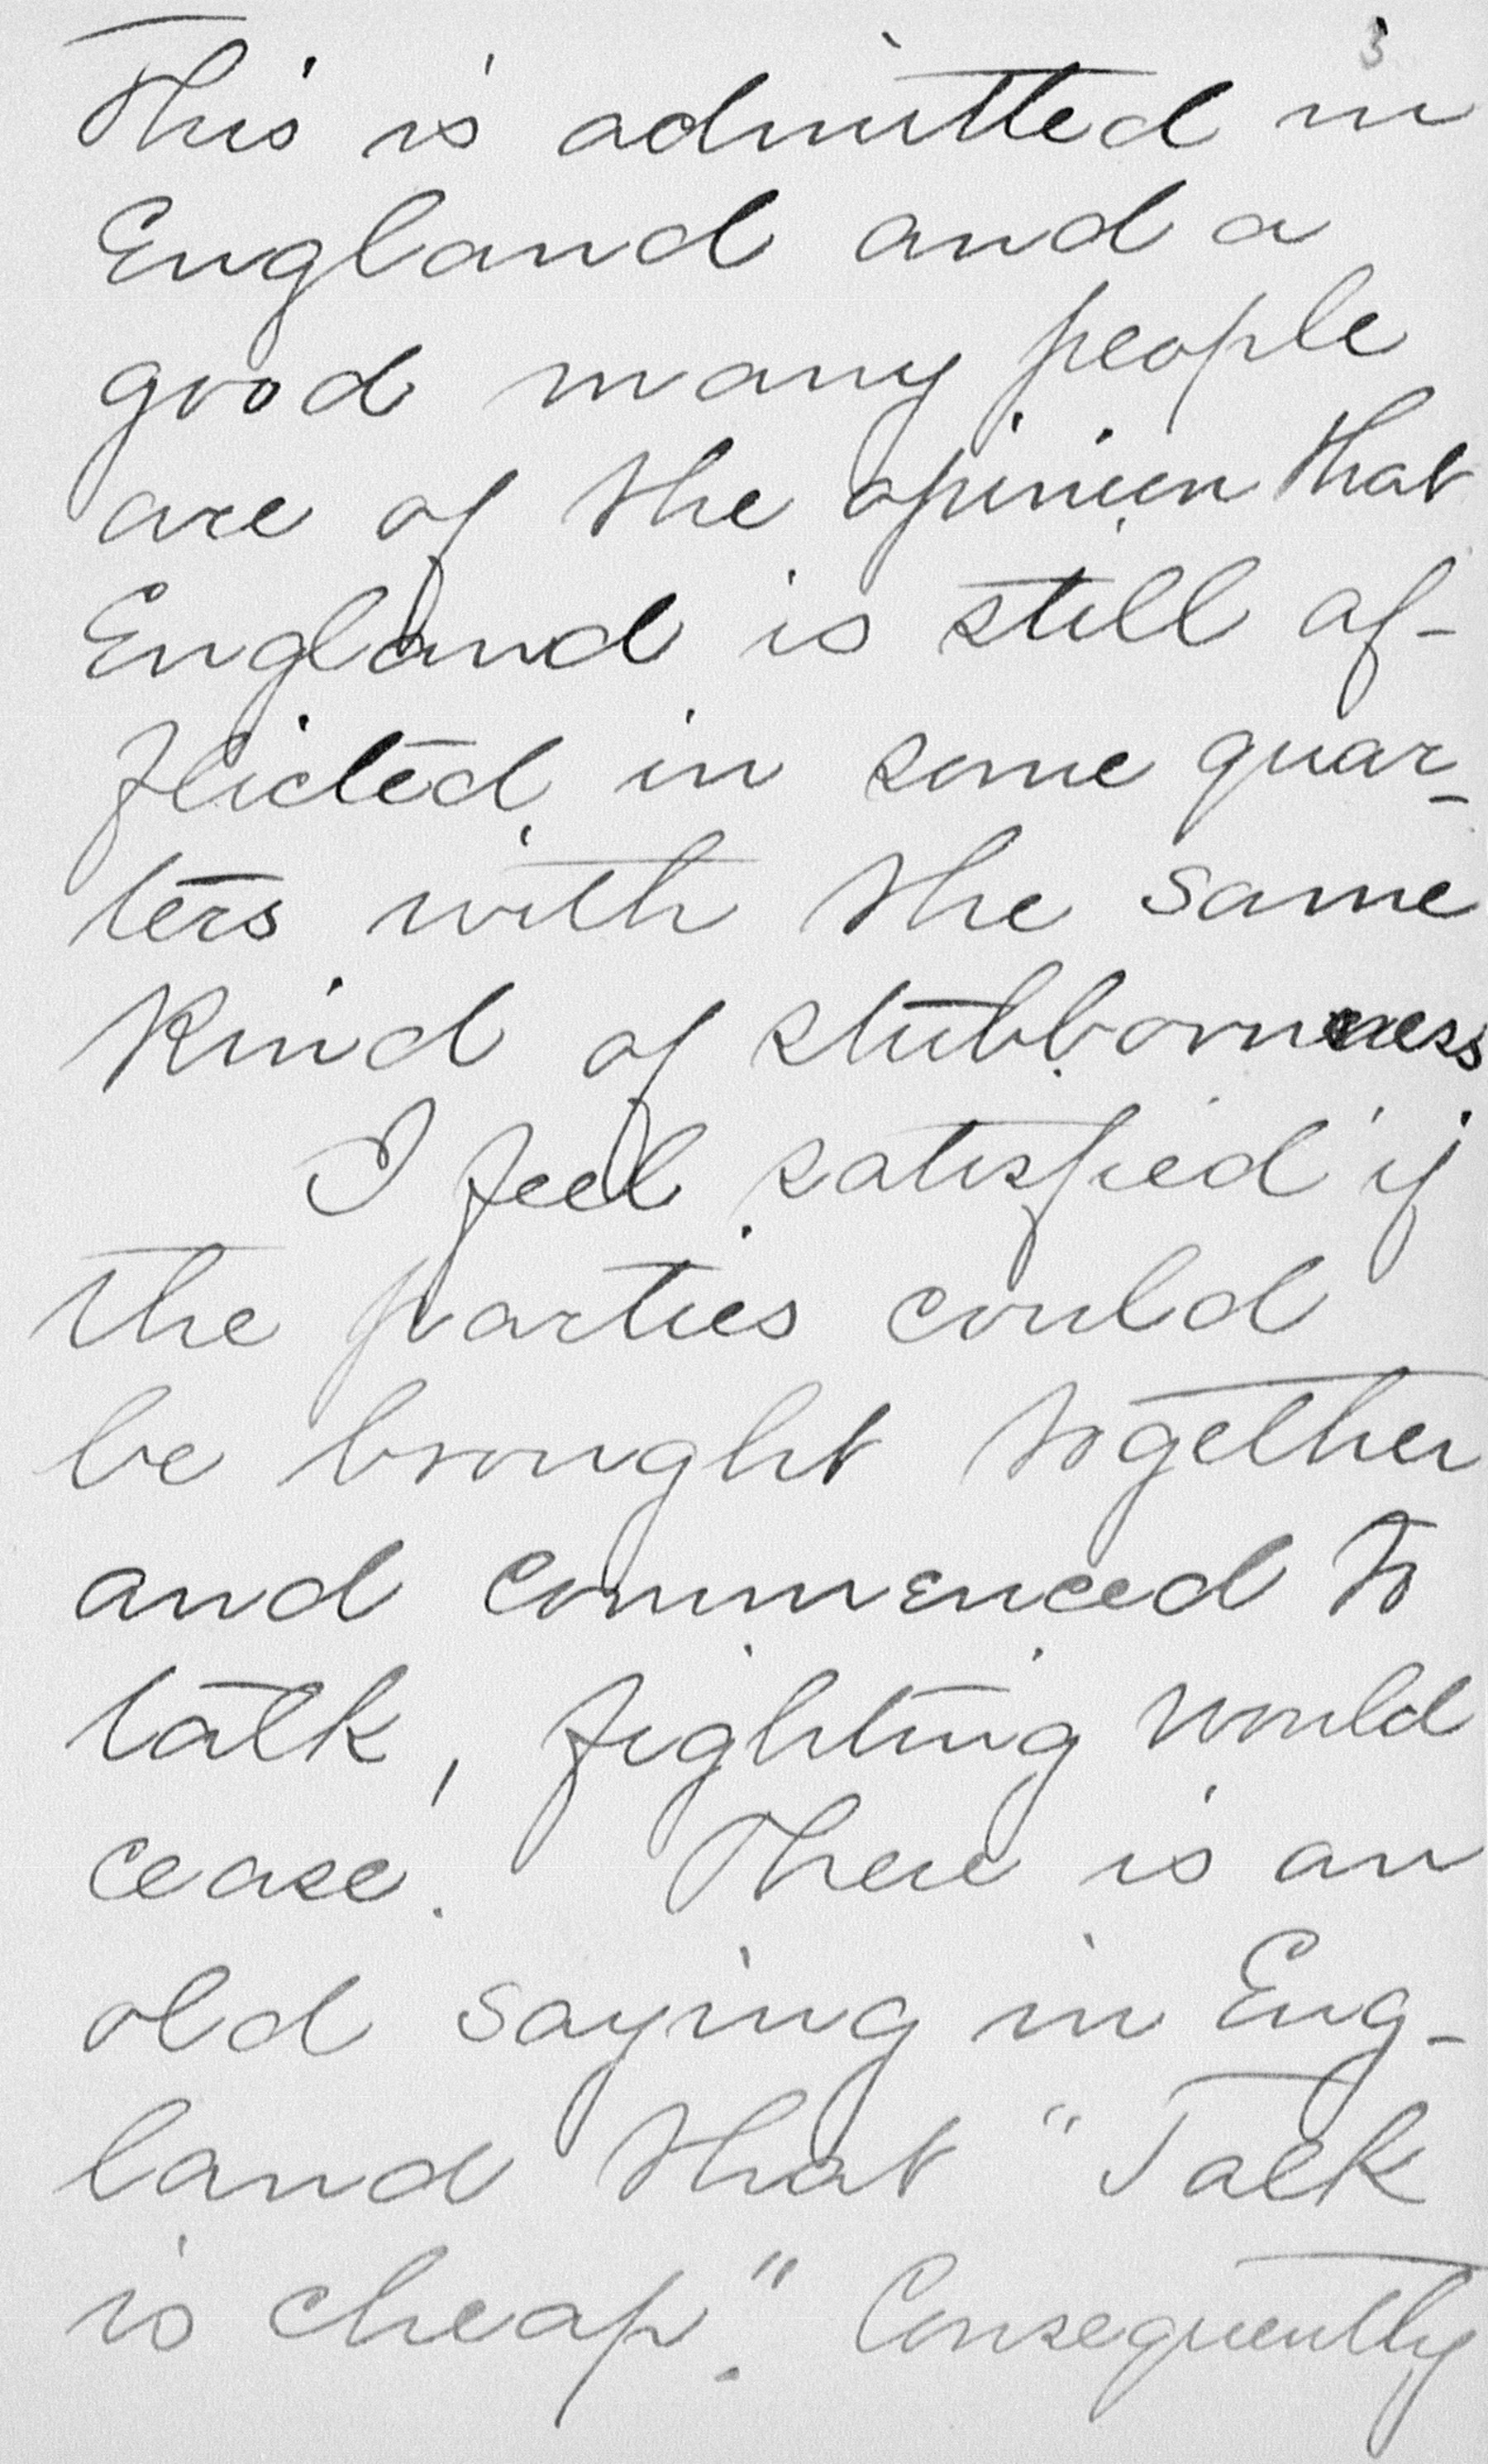 3
This is admitted in
England and a
good many people
are of the opinion that
England is still af-
flicted in some quar-
ters with the same
kind of stubbornness
I feel satisfied if
the parties could
be brought together
and commenced to
talk, fighting would
cease. There is an
old saying in Eng-
land that "Talk
is cheap." Consequently